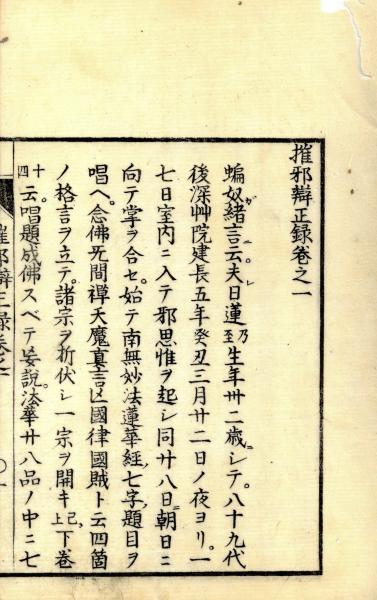 摧邪辯正録卷之一
蝙奴緒言ニ云夫レ日蓮乃至生年卅二歳ニシテ。八十九代
後深艸院建長五年癸丑三月廿二日ノ夜ヨリ。一
七日室内ニ入テ邪思惟ヲ起シ同廿八日朝日ニ
向テ掌ヲ合セ。始テ南無妙法蓮華經七字ノ題目ヲ
唱ヘ。念佛无間禪天魔真言亾國律國賊ト云四箇
ノ格言ヲ立テ。諸宗ヲ折伏シ一宗ヲ開キ已上下卷
十四云。唱題成佛スベテ妄說。法華廿八品ノ中ニ七
摧邪辯正録卷之一
○一